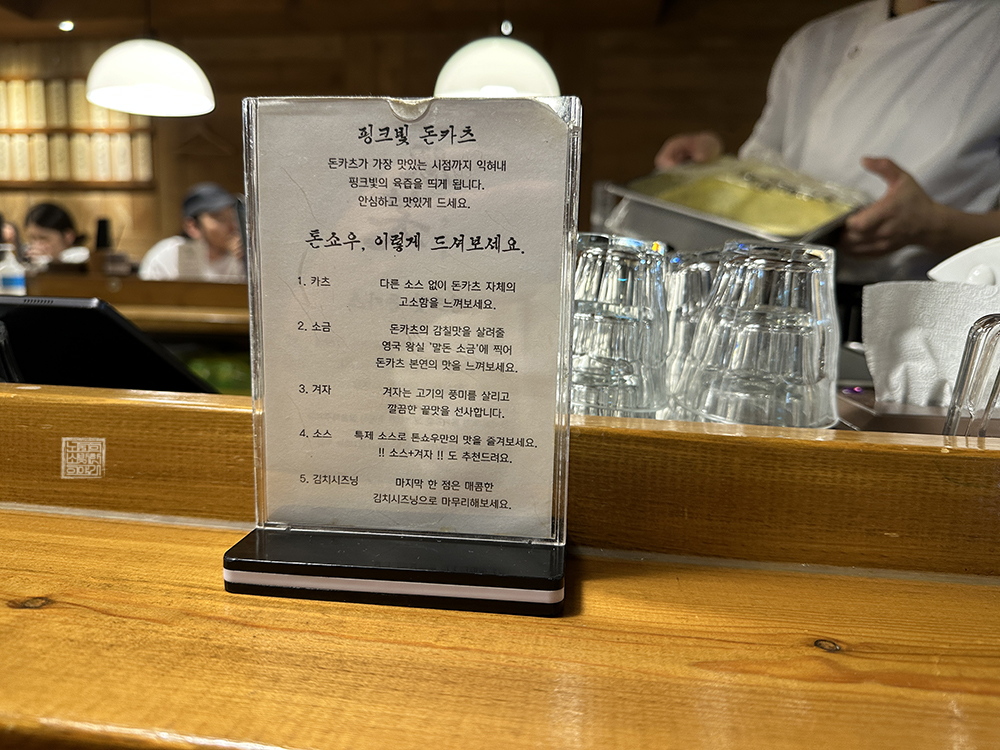 핑크빛 돈카츠
돈카츠가 가장 맛있는 시점까지 익혀내
핑크빛의 육즙을 띄게 됩니다.
안심하고 맛있게 드세요.
톤쇼우, 이렇게 드셔보세요.
1. 카츠 다른 소스 없이 돈카츠 자체의
고소함을 느껴보세요.
2. 소금 돈카츠의 감칠맛을 살려줄
영국 왕실 '말돈 소금'에 찍어
돈카츠 본연의 맛을 느껴보세요.
3. 겨자 겨자는 고기의 풍미를 살리고
깔끔한 끝맛을 선사합니다.
4. 소스 특제 소스로 톤쇼우만의 맛을 즐겨보세요.
!! 소스+겨자 !! 도 추천드려요.
5. 김치시즈닝 마지막 한 점은 매콤한
김치시즈닝으로 마무리해보세요.